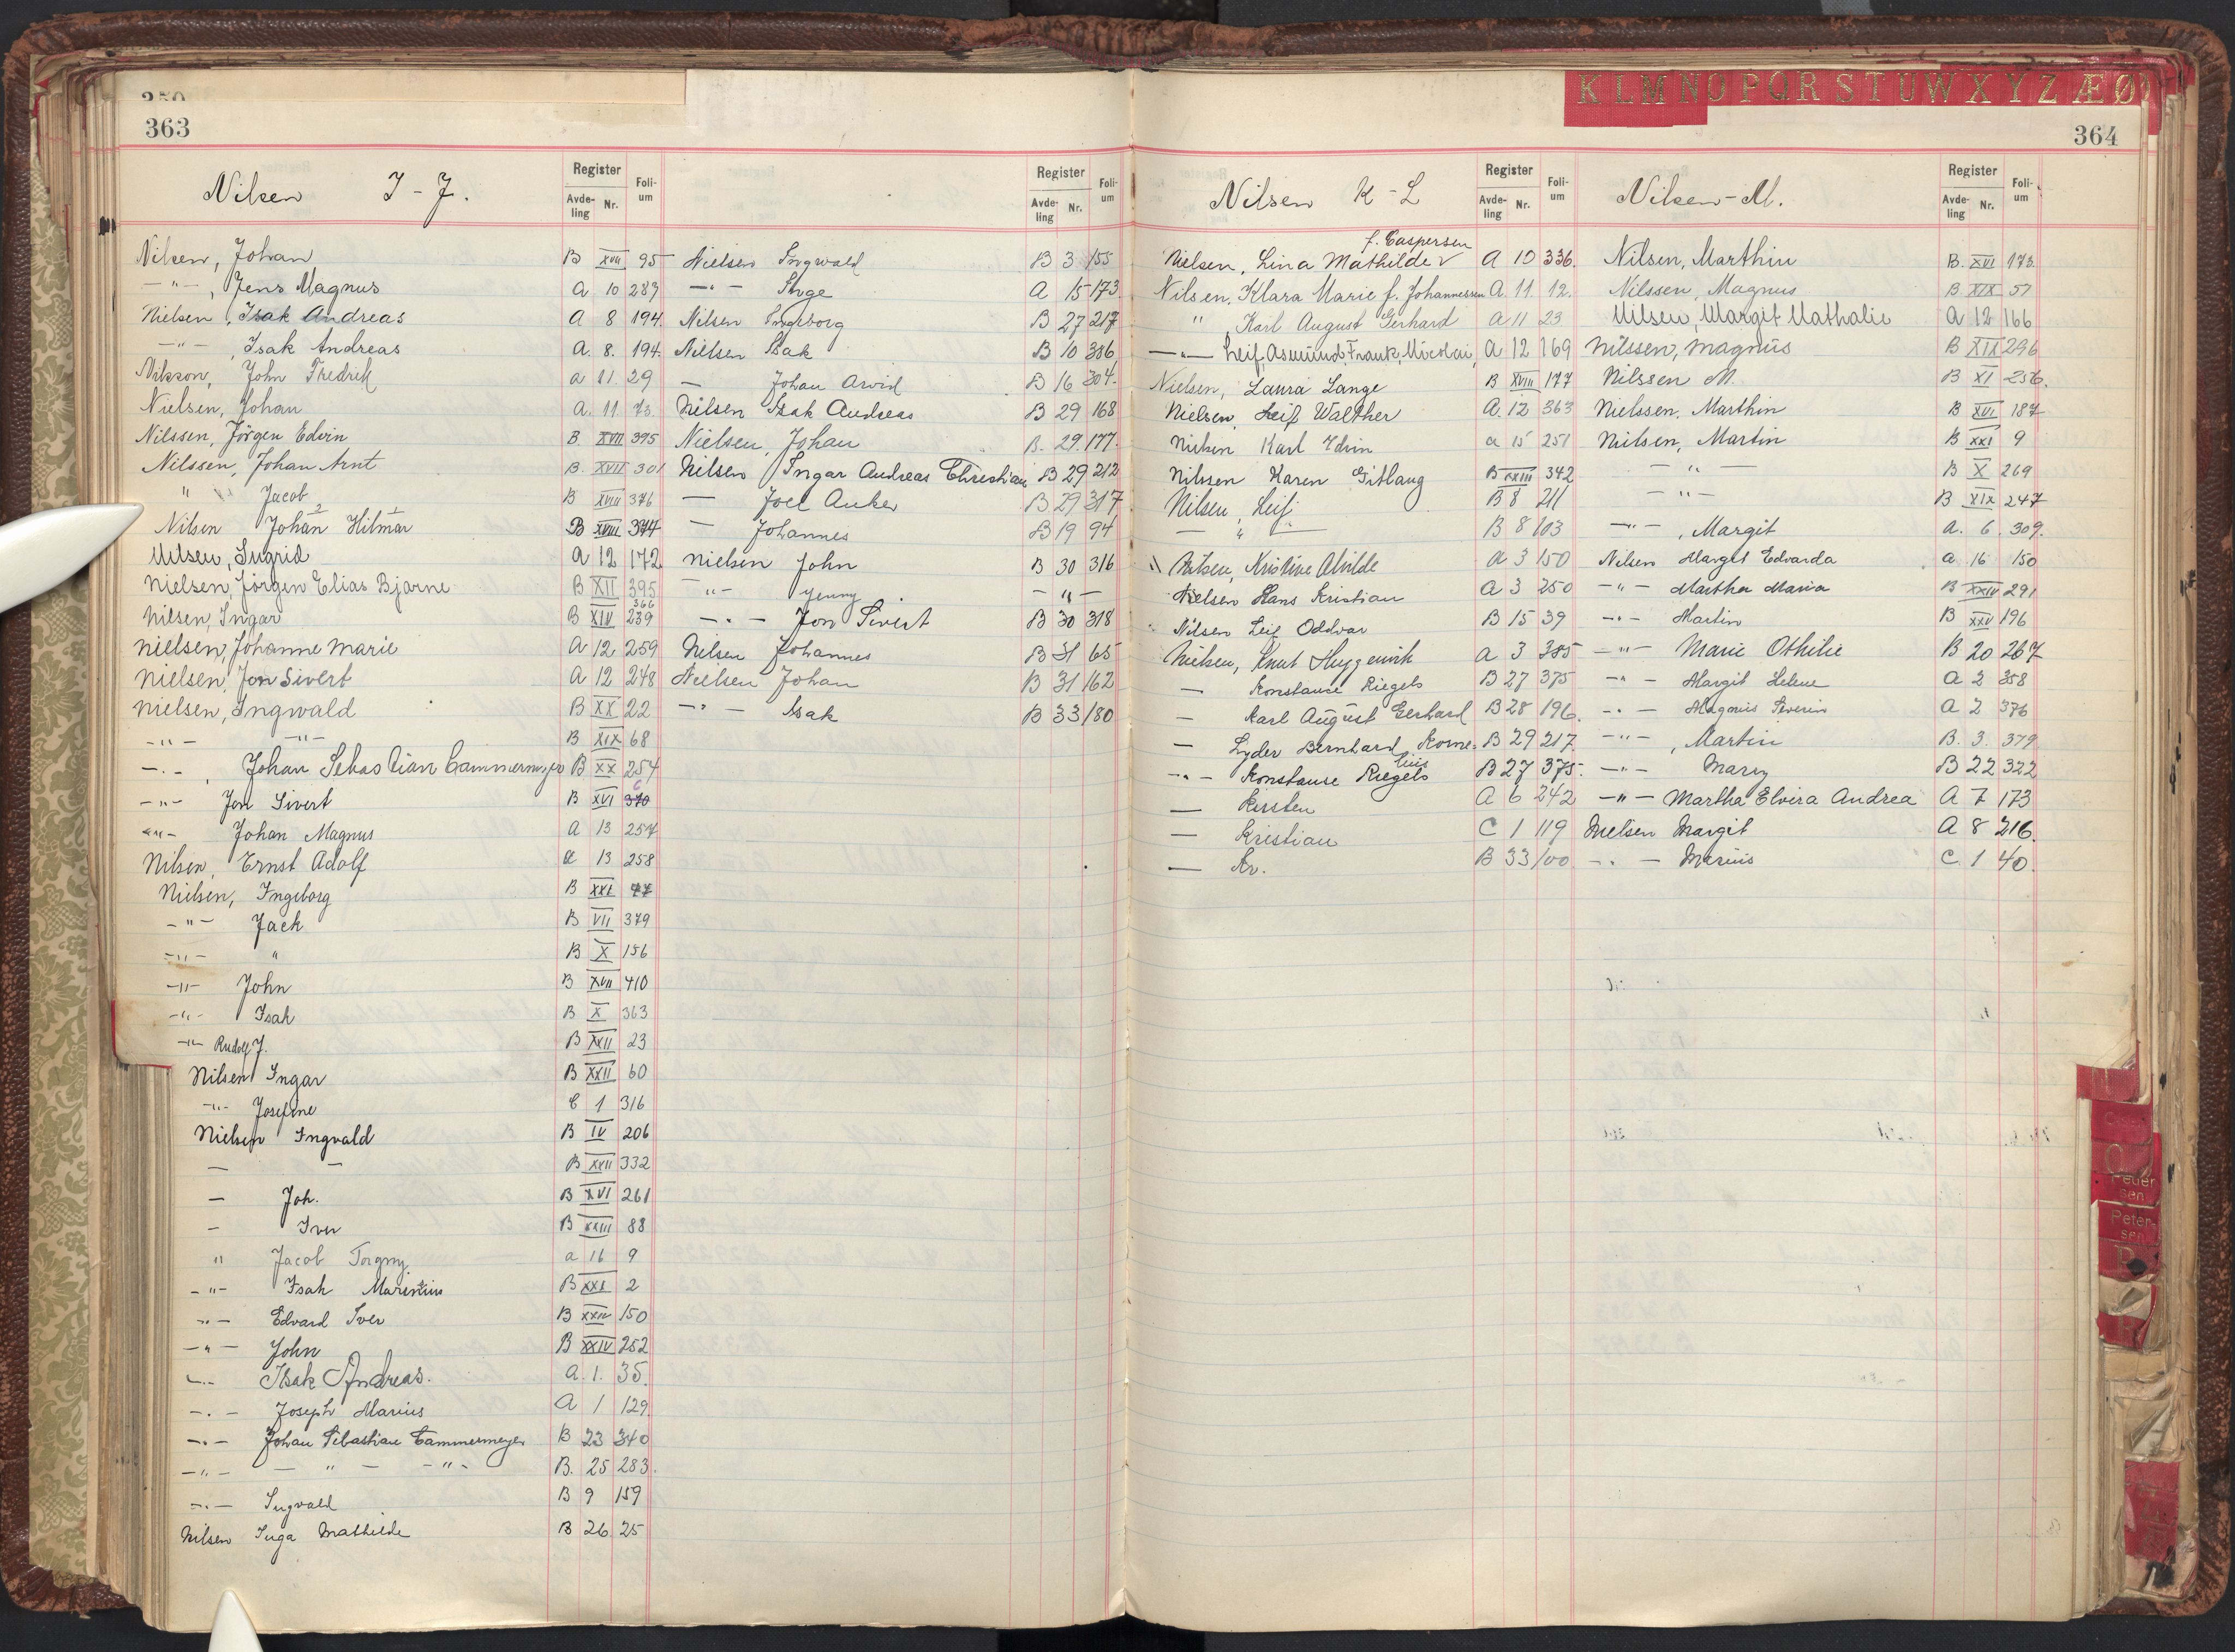 350
363
Nilsen I - J.
Register
Avde-ling Nr.
Foli-um
Nilsen, Johan B XVII 95
-"- , Jens Magnus A 10 287
Nielsen, Isak Andreas A 8 194
-"- , Isak Andreas A. 8. 194
Nilsson, John Fredrik a 11 29
Nielsen, Johan A. 11 73
Nilssen, Jörgen Edvin B. XVII 395
Nilssen, Johan Arnt B. XVII 301
" Jacob B XVIII 376
Nilsen Johan 2 Hilmar 1 B XVIII 344
Nilsen, Ingrid A 12 172
Nielsen, Jörgen Elias Bjarne B XII 395
Nilsen, Ingar B XIV 366 239
Nielsen, Johanne Marie A 12 259
Nielsen, Jon Sivert A 12 248
Nielsen, Ingwald B XX 22
-"- -"- B XIX 68
-"- , Johan Sebastian Cammermeyer B XX 254
-"- Jon Sivert B XVI 370
-"- Johan Magnus A 13 257
Nilsen, Ernst Adolf a 13 258
Nielsen, Ingeborg B XXI 77
-"- Jack B VII 379
-"- " B X 156
-"- John B XVII 410
-"- Isak B X 363
-"- Rudolf J. B XXII 23
Nilsen Ingar B XXII 60
-"- Josefine C 1 316
Nielsen Ingvald B IV 206
— — B XXII 332
— Joh. B XVI 261
- Iver B XXIII 88
" Jacob Torgny a 16 9
-"- Isak Marentius B XXI 2
-"- Edvard Iver B XXIV 150
-"- John B XXIV 252
-"- Isak Andreas. A. 1. 35.
-"- Joseph Marius A 1 129
-"- Johan Sebastian Cammermeyer B 23 340
-"- — " — -"- B. 25 283.
-"- Ingvald B 9 159
Nilsen Inga Mathilde B 26 25
Register
Avde-ling Nr.
Foli-um
Nielsen Ingwald B 3 155
-"- Inge A 15 173
Nilsen Ingeborg B 27 217
Nielsen Isak B 10 386
— Johan Arvid B 16 304.
Nilsen Isak Andreas B 29 168
Nielsen, Johan B. 29. 177.
Nilsen Ingar Andreas Christian B 29 212
— Joel Anker B 29 317
— Johannes B 19 94
Nielsen John B 30 316
-"- Jenny — " —
-"- Jon Sivert B 30 318
Nilsen Johannes B 31 65
Nielsen Johan B 31 162
-"- Isak B 33 180
K L M N O P Q R S T U W X Y Z Æ Ø
364
Nilsen K - L
Register
Avde-ling Nr.
Foli-um
f. Caspersen
Nielsen, Lina Mathilde A 10 336.
Nilsen, Klara Marie f. Johannessen A. 11 12.
" , Karl August Gerhard a 11 23
-"- Leif Asmund Frank Nicolai, A 12 169
Nielsen, Laura Lange B XVIII 177
Nielsen, Leif Walther A. 12 363
Nielsen Karl Edvin a 15 251
Nilssen Karen Gitlaug B XXIII 342
Nilsen, Leif B 8 211
— " — B 8 103
Nilsen, Kristine Alvilde a 3 150
Nielsen Hans Kristian A 3 250
Nilsen Leif Oddvar B 15 39
Nielsen, Knut Huggenvik a 3 385
— Konstanse Riegels B 27 375
— Karl August Gerhard B 28 196.
— Lyder Bernhard Kornelius B 29 217
-"- Konstanse Riegels B 27 375.
— Kirsten A 6 242
— Kristian C 1 119
— Kr. B 33 100
Nilsen - M.
Register
Avde-ling Nr.
Foli-um
Nilsen, Marthin B. XVI 173
Nilssen, Magnus B XIX 57
Nilsen, Margit Mathalie A 12 166
Nilssen, Magnus B XIX 296
Nilssen M. B XI 256.
Nielssen, Marthin B XVI 187
Nielsen, Martin B XXI 9
— " — B X 269
— " — B XIX 247
-"- , Margit A. 6. 309.
Nilsen Margit Edvarda a. 16 150
-"- Martha Maria B XXIV 291
-"- Martin B XXV 196
-"- Marie Othilie B 20 267
-"- Margit Helene A 2 358
-"- Magnus Severin A 2 376
-"- , Martin B. 3. 379
-"- Mary B 22 322
-"- Martha Elvira Andrea A 7 173
Nielsen Margit A 8 216.
-"- Marius C. 1 40.
Peder
sen
Peter-
sen